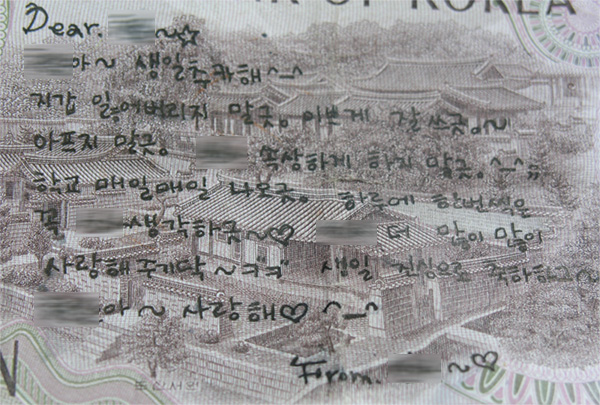 OF KOREA
Dear. ~☆
아~ 생일축카해^-^
지갑 잃어버리지 말긋. 이쁘게 잘쓰긋.~
아프지 말긋. 속상하게 하지 말긋.^-^;;
학교 매일매일 나오긋. 하루에 한번씩은
꼭 생각하긋~♡ 더 많이 많이
사랑해주기닥~ㅋㅋ 생일 진심으로 축하하고~
아~ 사랑해♡ ^-^
도산서원
From. ~♡